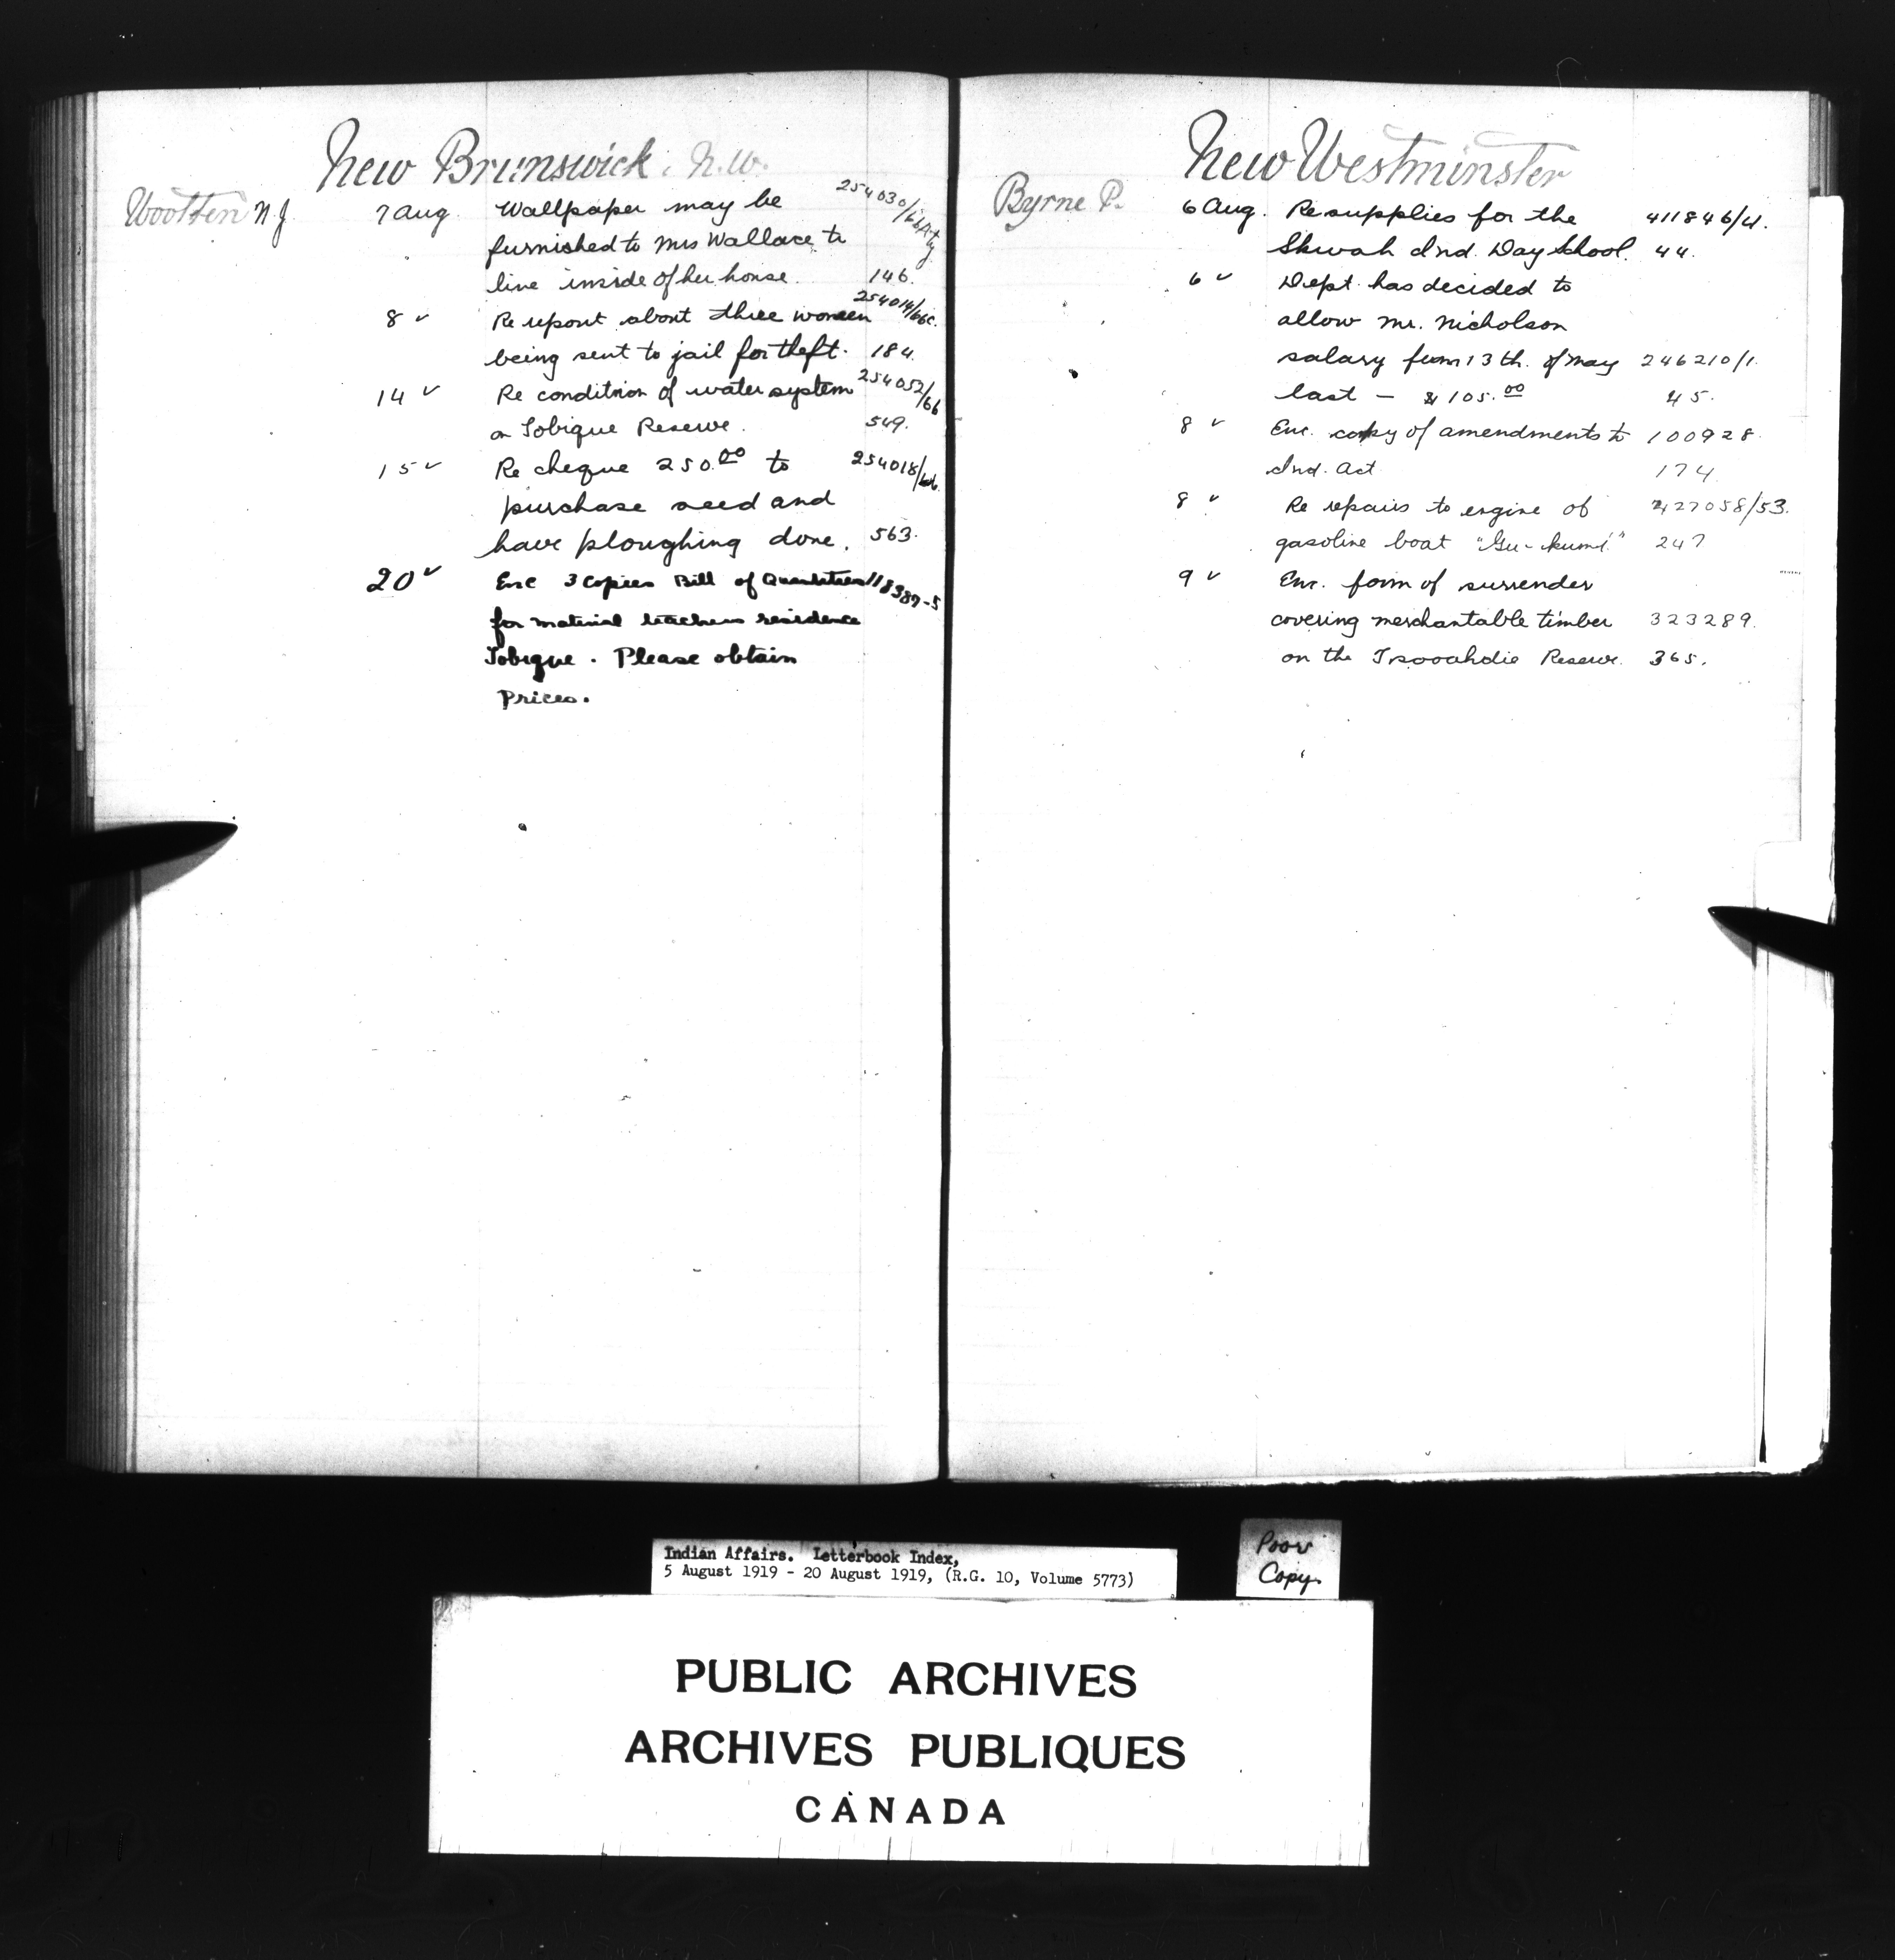 New Brunswick. N.W.
Wootten N J 7 Aug. Wallpaper may be 254030/66
furnished to Mrs Wallace to
line inside of her house. 146.
8 " Re report about three women 254014/66c.
being sent to jail for theft. 184.
14 " Re condition of water system 254052/66
on Tobique Reserve. 549.
15 " Re cheque 250.00 to 254018/66
purchase seed and
have ploughing done. 563.
20 " Enc 3 Copies Bill of Quantities 118387-5
for material teachers residence
Tobique. Please obtain
Prices.
New Westminster
Byrne P. 6 Aug. Re supplies for the 411846/41.
Skwah Ind. Day School. 44.
6 " Dept. has decided to
allow Mr. Nicholson
salary from 13th. of May 246210/1.
last – $105.00 45.
8 " Enc. copy of amendments to 100928.
Ind. Act 174
8 " Re repairs to engine of 427058/53.
gasoline boat "Gu-kumi" 247
9 " Enc. form of surrender
covering merchantable timber 323289.
on the Tsooahdie Reserve. 365.
Indian Affairs. Letterbook Index,
5 August 1919 - 20 August 1919, (R.G. 10, Volume 5773)
Poor
Copy.
PUBLIC ARCHIVES
ARCHIVES PUBLIQUES
CANADA